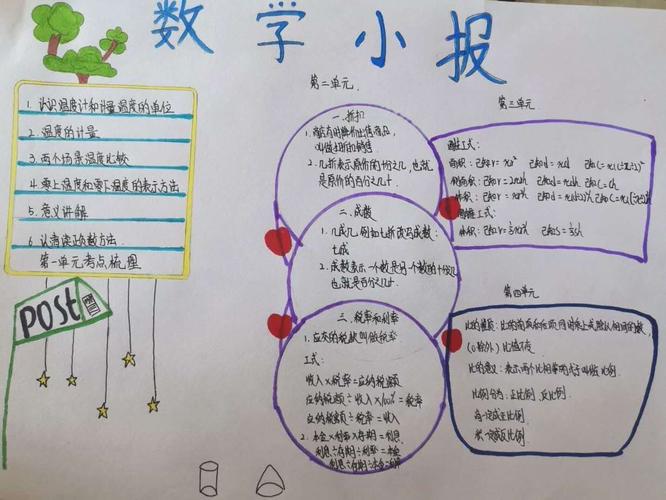 数学小报
1. 认识温度计和计量温度的单位
2. 温度的计量
3. 两个场景温度比较
4. 零上温度和零下温度的表示方法
5. 意义讲解
6. 认清读正负数方法
第一单元考点梳理
POST
第二单元
一. 折扣
1. 商店有时降价出售商品,
叫做打折销售
2. 几折表示原价的十分之几, 也就
是原价的百分之几十.
二. 成数
1. 几成几, 例如七折改写成数:
七成
2. 成数表示一个数是另一个数的十分之几
也就是百分之几十
三. 税率和利率
1. 应交的税款叫做税率
公式:
收入×税率=应纳税额
应纳税额÷收入×100%=税率
应纳税额÷税率=收入
2. 本金×利率×存期=利息
利息÷存期÷利率=本金
利息÷存期÷本金=利率
第三单元
圆柱公式:
面积: 已知r=πr²
侧面积: 已知r=2πrh 已知d=πdh 已知C=Ch
体积: 已知r=πr²h
圆锥公式:
体积: 已知r=⅓πr²h 已知S=⅓Sh
第四单元
比的性质: 比的前项和后项同时乘上或除以相同的数,
(0除外) 比值不变
比的意义: 表示两个比相等的式子叫做比例.
比例分为: 正比例, 反比例.
商一定成正比例.
积一定成反比例.